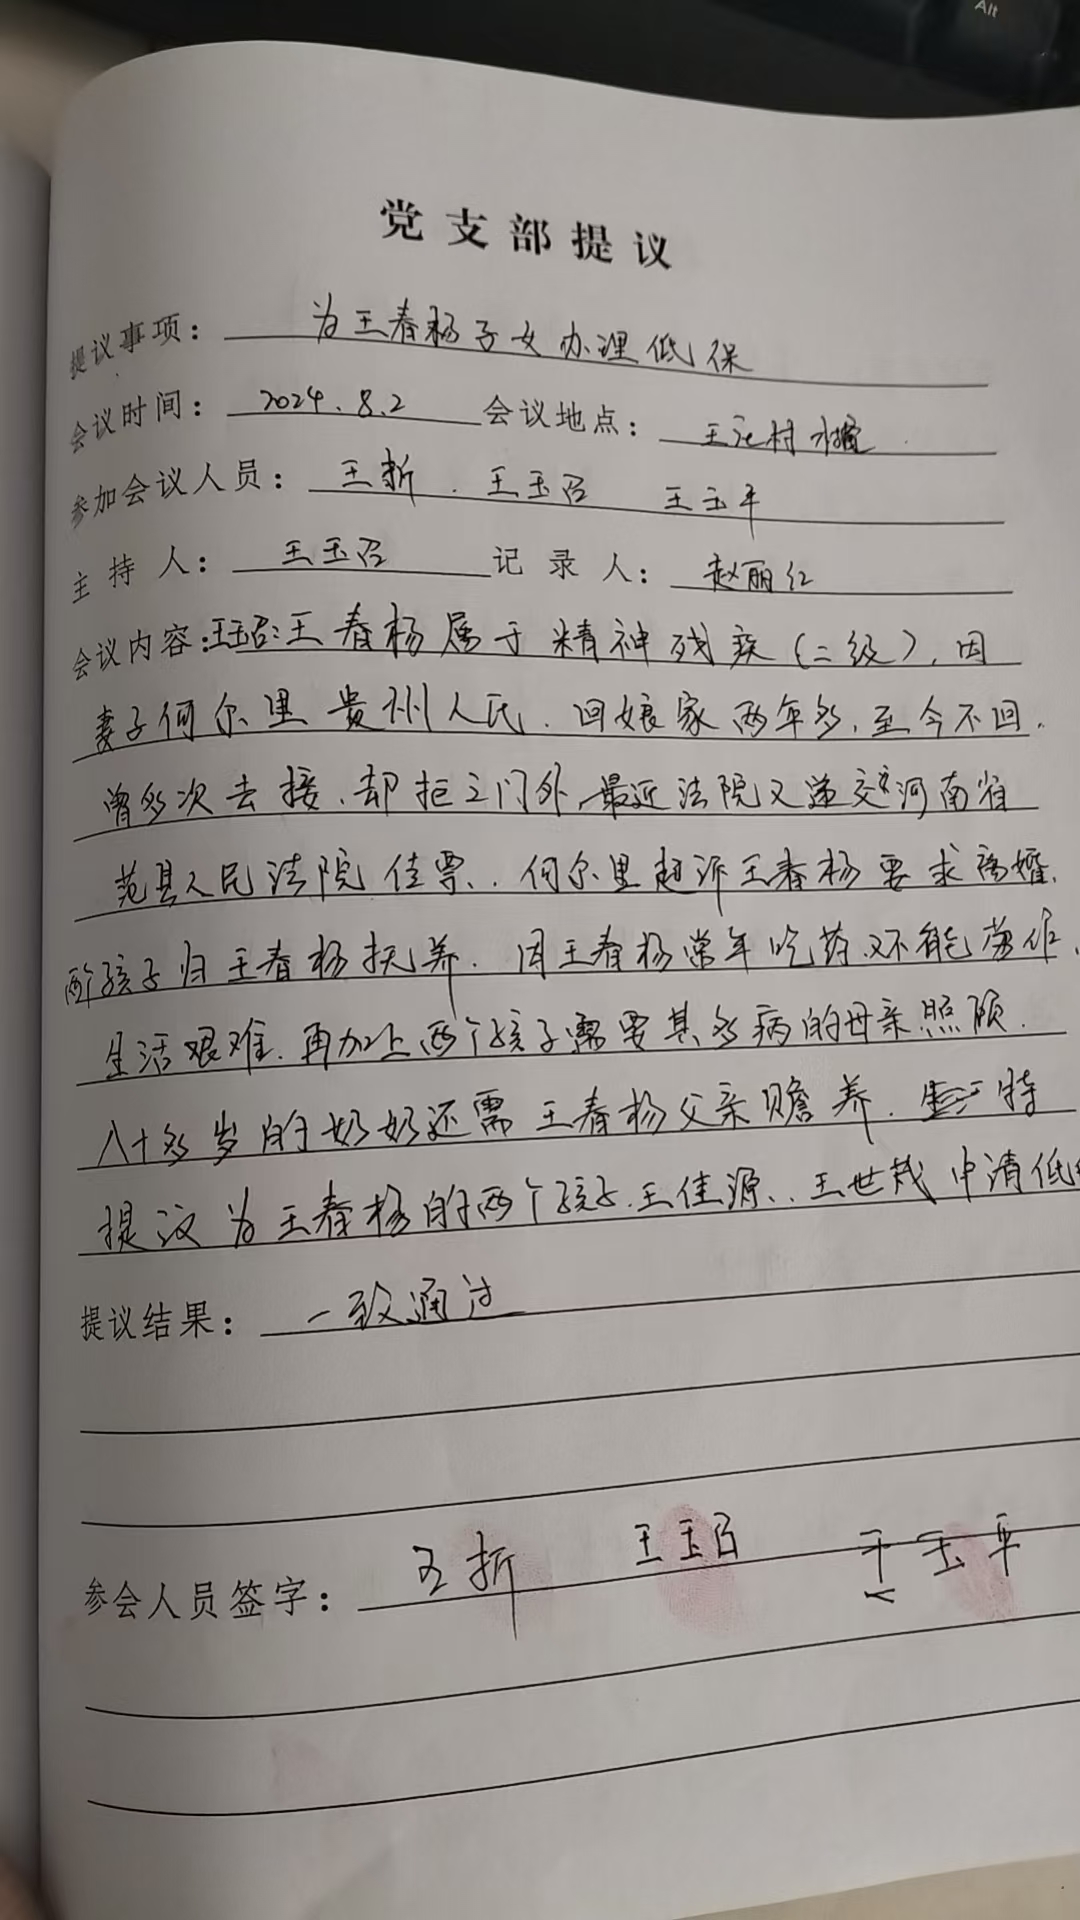 Alt
党支部提议
提议事项：为王春杨子女办理低保
会议时间：2024.8.2 会议地点：王庄村
参加会议人员：王折、王玉召 王玉平
主持人：王玉召 记录人：赵丽红
会议内容：王玉召：王春杨属于精神残疾（二级），因
妻子何尔里贵州人氏、回娘家两年多，至今不回，
曾多次去接、却拒之门外，最近法院又递交河南省
范县人民法院传票、何尔里起诉王春杨要求离婚，
两个孩子归王春杨抚养、因王春杨常年吃药又不能劳作，
生活艰难、再加上两个孩子需要其多病的母亲照顾、
八十多岁的奶奶还需王春杨父亲赡养、特
提议为王春杨的两个孩子、王佳源、王世哉申请低
提议结果：一致通过
参会人员签字：王折 王玉召 王玉平